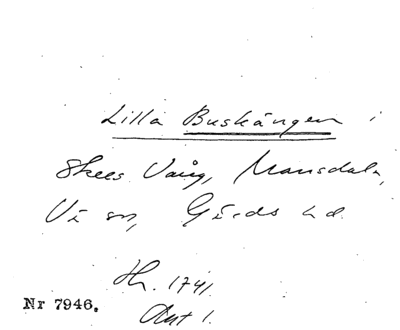 Lilla Buskängen i
Skees Vång, Mansdala,
Vä sn, Gärds hd.
Hr. 1741.
Akt 1.
Nr 7946.